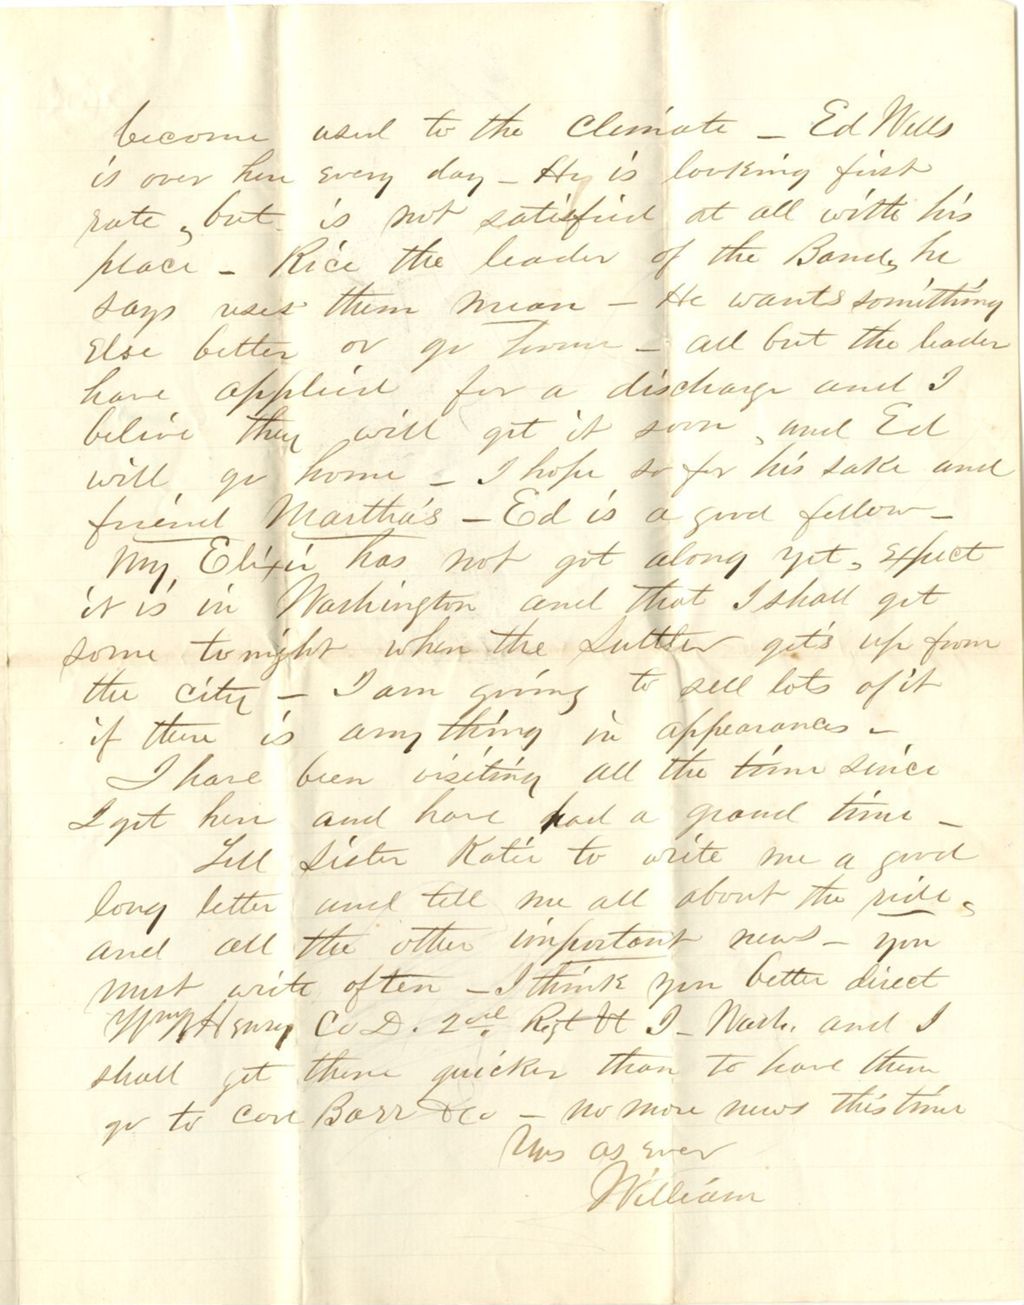 become used to the climate – Ed Wells
is over here every day – He is looking first
rate, but is not satisfied at all with his
place – Rice the leader of the Band, he
says uses them mean – He wants something
Else better or go home – all but the leader
have applied for a discharge and I
belive they will get it soon, and Ed
will go home – I hope so for his sake and
friend Martha's – Ed is a good fellow –
My Elixir has not got along yet, expect
it is in Washington and that I shall get
some tonight when the Suttler get's up from
the city – I am going to sell lots of it
if there is any thing in appearances –
I have been visiting all the time since
I got here and have had a grand time –
Tell Sister Katie to write me a good
long letter and tell me all about the ride,
and all the other important news – you
must write often – I think you better direct
Wm W Henry Co D. 2nd. Regt Vt I – Wash. and I
shall get them quicker than to have them
go to care Barr &Co – no more news this time
Yurs as ever
William